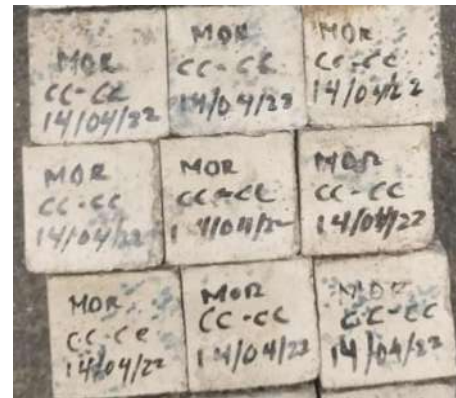 MOR
CC-CC
14/04/22
MOR
CC-CC
14/04/22
MOR
CC-CC
14/04/22
MOR
CC-CC
14/04/22
MOR
CC-CC
14/04/22
MOR
CC-CC
14/04/22
MOR
CC-CC
14/04/22
MOR
CC-CC
14/04/22
MOR
CC-CC
14/04/22